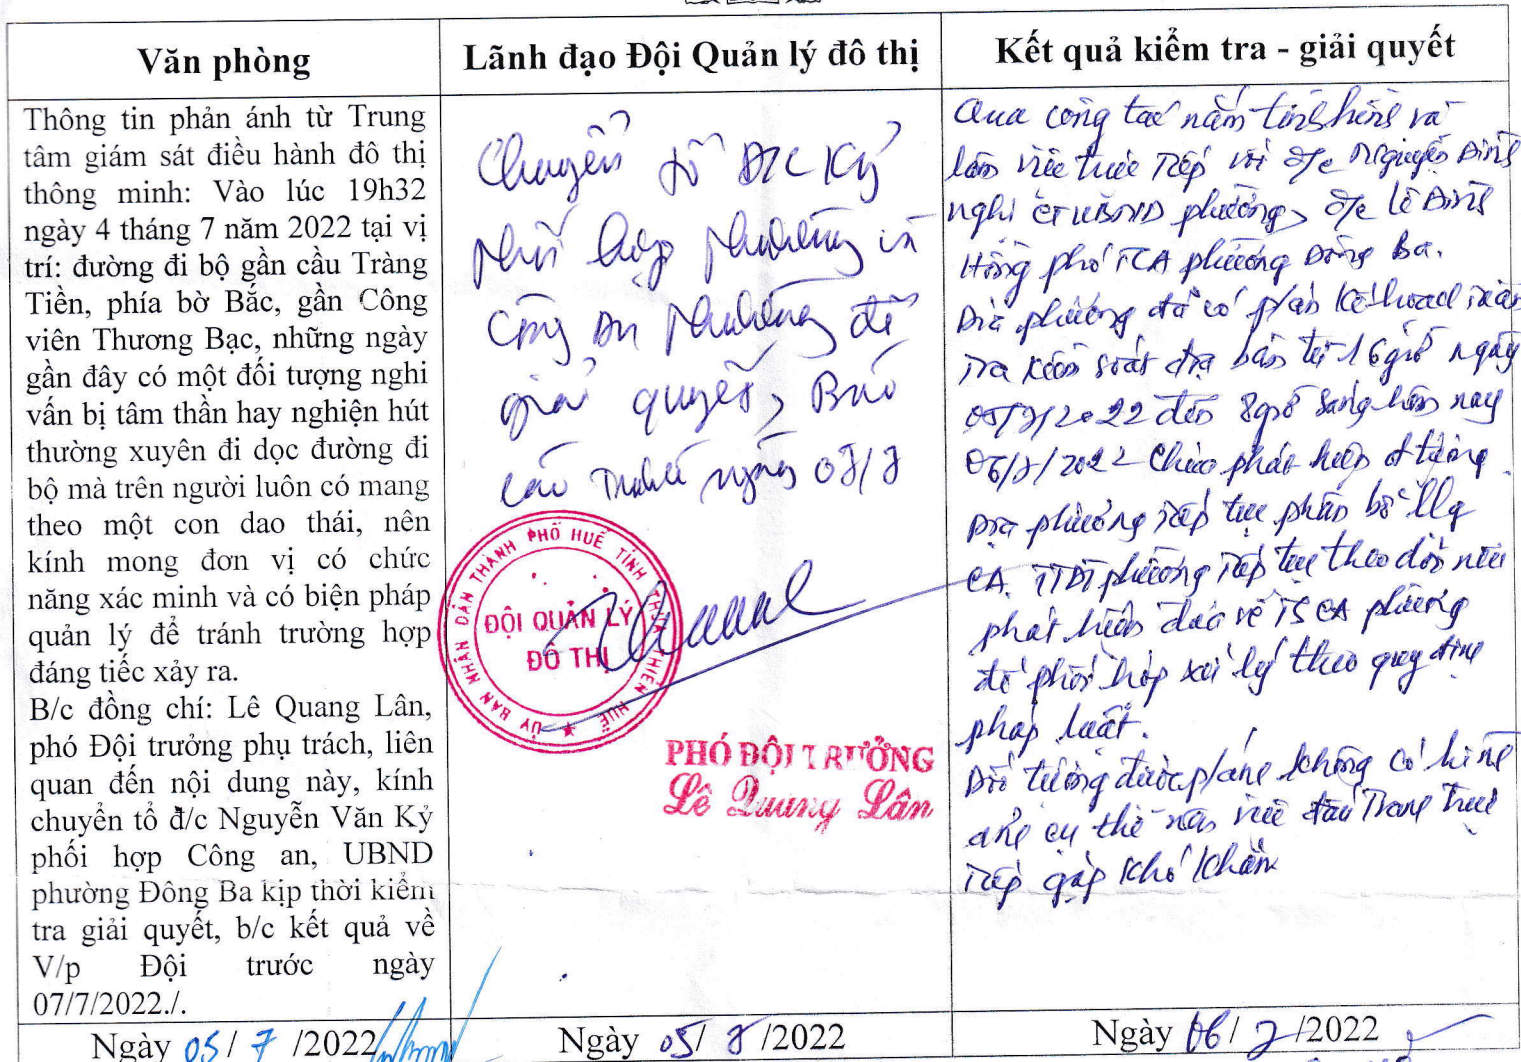 Văn phòng
Lãnh đạo Đội Quản lý đô thị
Kết quả kiểm tra - giải quyết
Thông tin phản ánh từ Trung
tâm giám sát điều hành đô thị
thông minh: Vào lúc 19h32
ngày 4 tháng 7 năm 2022 tại vị
trí: đường đi bộ gần cầu Tràng
Tiền, phía bờ Bắc, gần Công
viên Thương Bạc, những ngày
gần đây có một đối tượng nghi
vấn bị tâm thần hay nghiện hút
thường xuyên đi dọc đường đi
bộ mà trên người luôn có mang
theo một con dao thái, nên
kính mong đơn vị có chức
năng xác minh và có biện pháp
quản lý để tránh trường hợp
đáng tiếc xảy ra.
B/c đồng chí: Lê Quang Lân,
phó Đội trưởng phụ trách, liên
quan đến nội dung này, kính
chuyển tổ đ/c Nguyễn Văn Kỷ
phối hợp Công an, UBND
phường Đông Ba kịp thời kiểm
tra giải quyết, b/c kết quả về
V/p Đội trước ngày
07/7/2022./.
Chuyển tổ Đ/c Kỷ
phối hợp phường và
Công an phường để
giải quyết, Báo
cáo trước ngày 07/7
ỦY BAN NHÂN DÂN THÀNH PHỐ HUẾ TỈNH THỪA THIÊN HUẾ
ĐỘI QUẢN LÝ
ĐÔ THỊ
PHÓ ĐỘI TRƯỞNG
Lê Quang Lân
Qua công tác nắm tình hình và
làm việc trực tiếp với đ/c Nguyễn Đình
nghi CT UBND phường, đ/c Lê Đình
Hồng phó TCA phường Đông Ba.
Địa phương đã có p/án kế hoạch
tra kiểm soát địa bàn từ 16giờ ngày
05/7/2022 đến 8giờ sáng hôm nay
06/7/2022 chưa phát hiện đ tượng
Địa phương tiếp tục phân bổ llg
CA. TTĐT phường tiếp tục theo dõi nếu
phát hiện đưa về TS CA phường
để phối hợp xử lý theo quy định
pháp luật.
Đối tượng được p/ánh không có hình
ảnh cụ thể nên việc đấu tranh trực
tiếp gặp khó khăn
Ngày 05/ 7 /2022
Ngày 05/ 7 /2022
Ngày 06/ 7 /2022